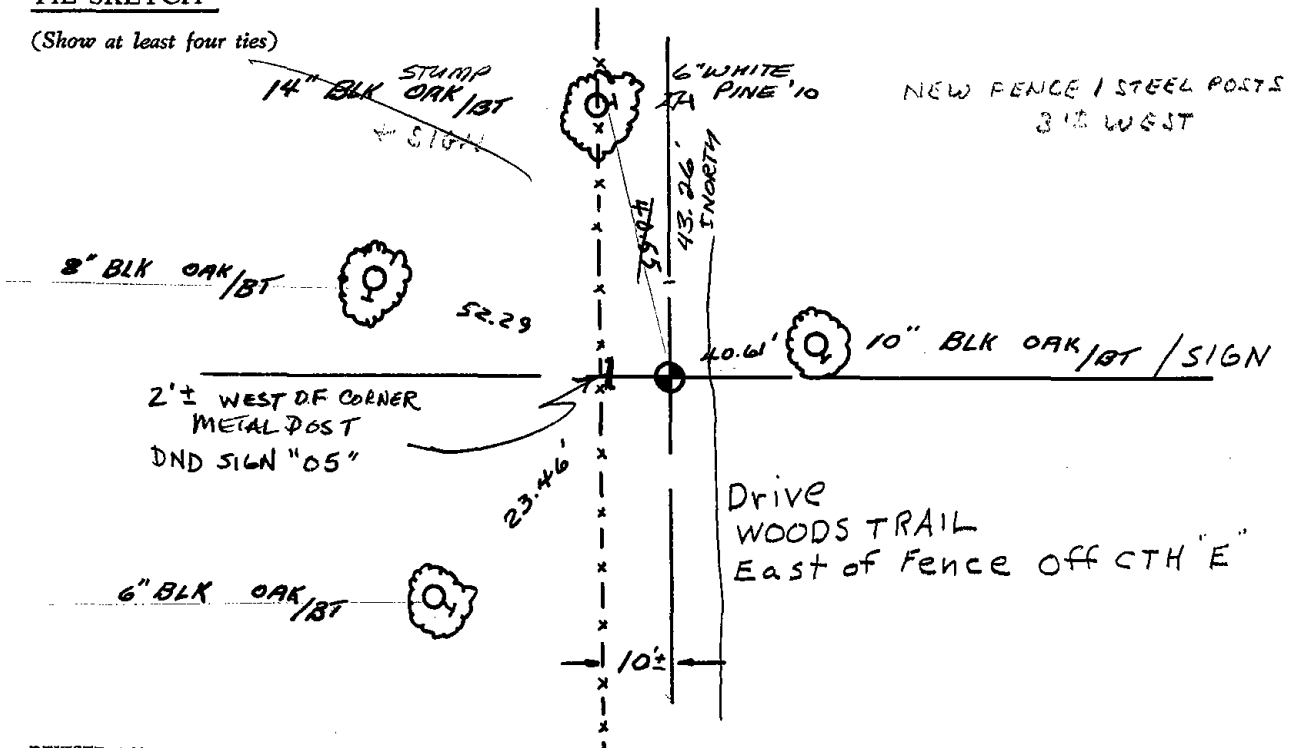 TIE SKETCH
(Show at least four ties)
14" BLK STUMP OAK/BT
+ SIGN
6" WHITE
PINE '10
NEW FENCE / STEEL POSTS
3'± WEST
43.26'
NORTH
40.65
8" BLK OAK/BT
52.29
40.61'
10" BLK OAK/BT / SIGN
2'± WEST OF CORNER
METAL POST
DND SIGN "05"
23.46'
Drive
WOODS TRAIL
East of Fence off CTH "E"
6" BLK OAK/BT
10'±